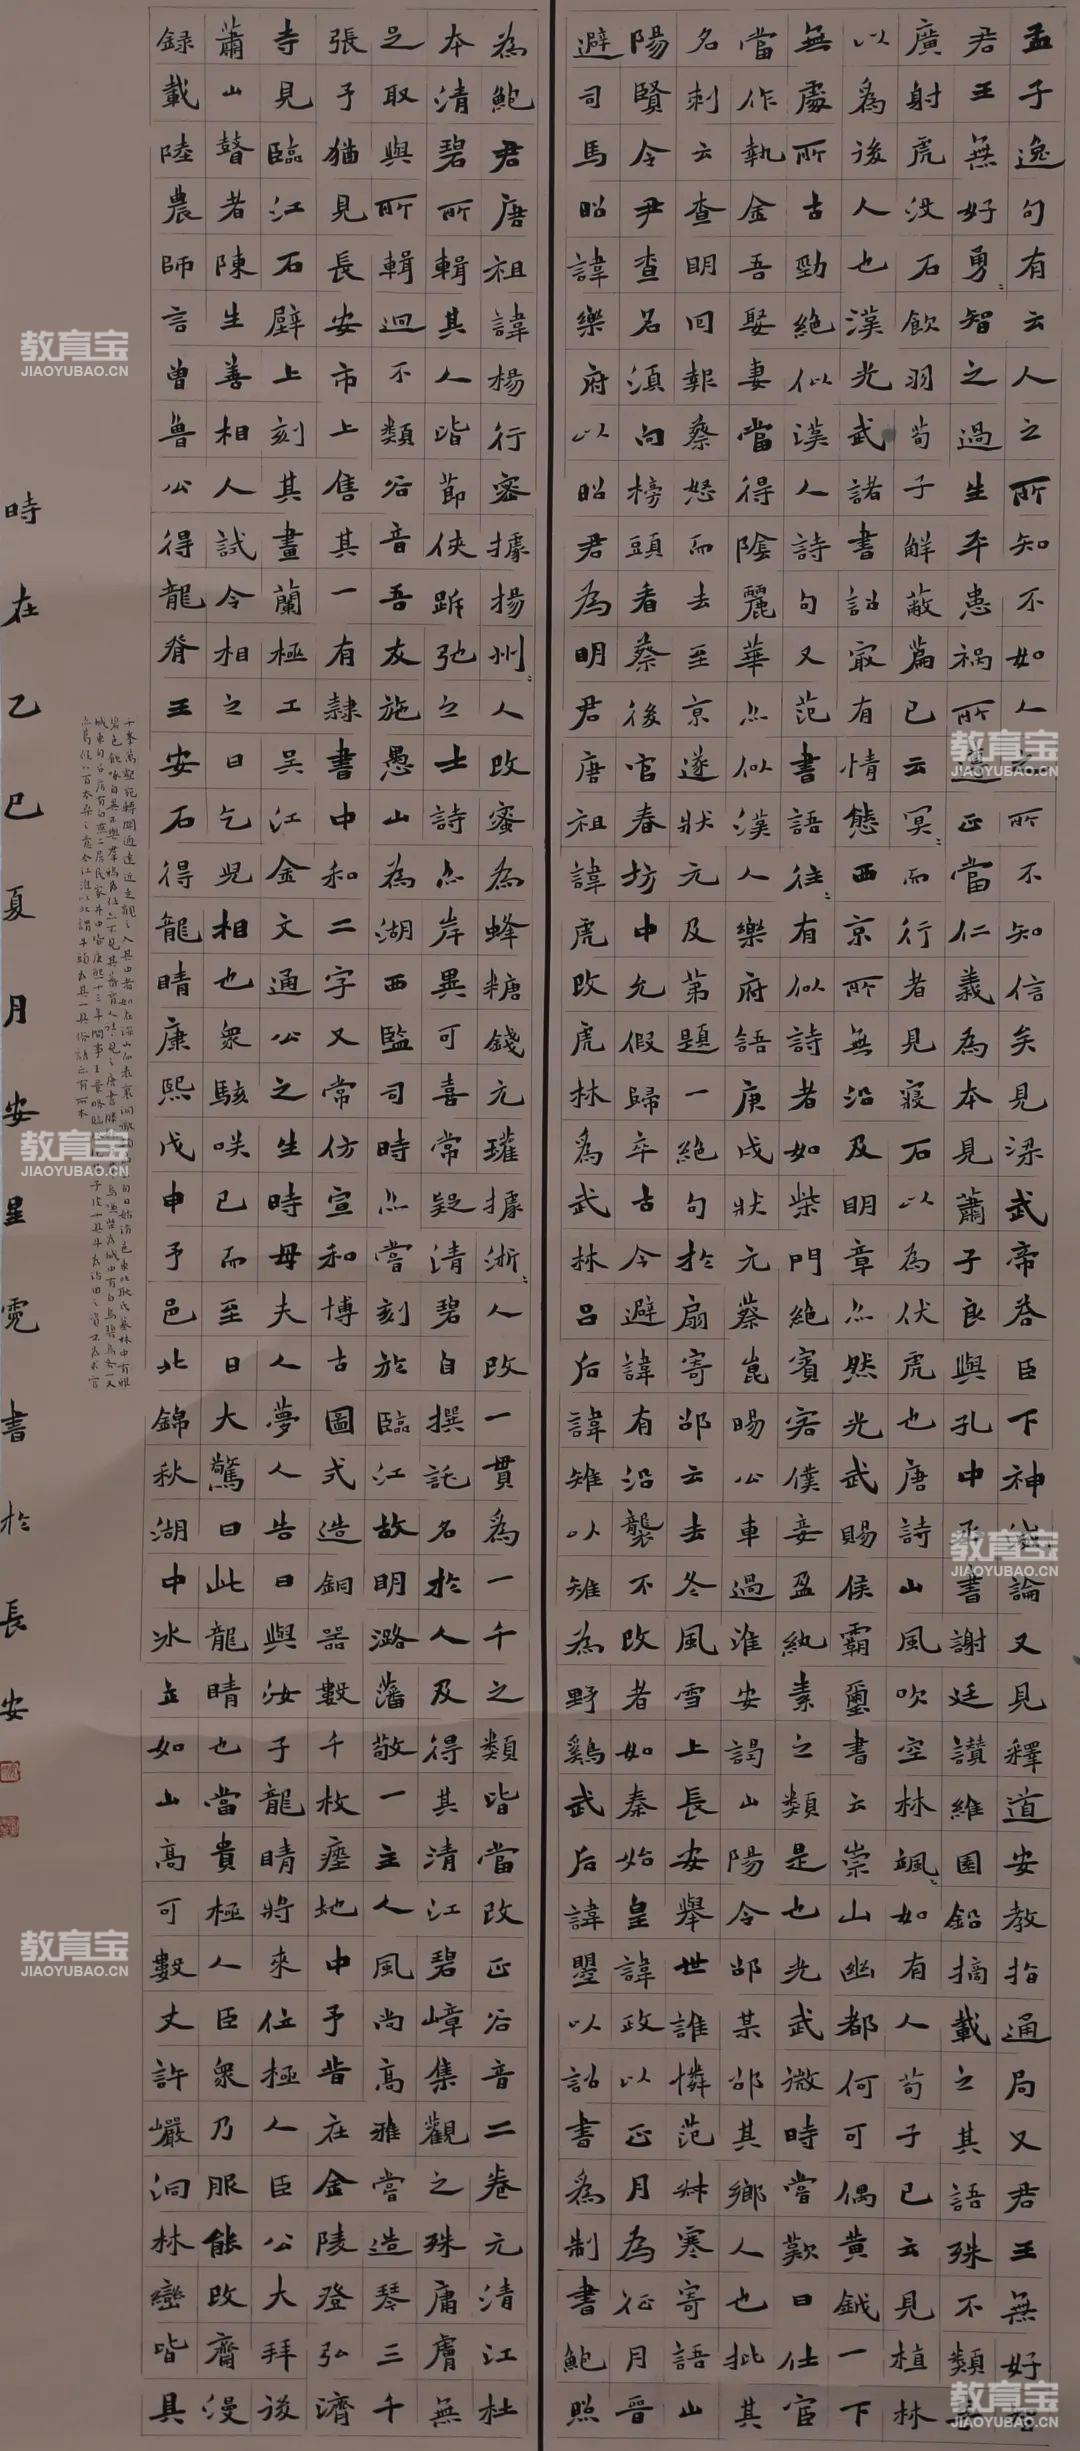 孟子逸句有云人之所知不如人之所不知信矣見梁武帝答臣下神滅論又見釋道安教指通局又君王無好智
君王無好勇〻智之過生平患禍所遵正當仁義為本見蕭子良與孔中丞書謝廷讃維園鉛摘載之其語殊不類李
廣射虎没石飲羽荀子解蔽篇已云冥〻而行者見寢石以為伏虎也唐詩山風吹空林颯〻如有人荀子已云見植林
以為後人也漢光武諸書詔寂有情態西京所無沿及明章亦然光武賜侯霸璽書云崇山幽都何可偶黄鉞一下
無處所古勁絕似漢人詩句又范書語往〻有似詩者如柴門絕賓客僕妾盈紈素之類是也光武微時嘗歎曰仕宦
當作執金吾娶妻當得陰麗華亦似漢人樂府語庚戌狀元蔡崑暘公車過淮安謁山陽令邰某邰其鄉人也批其
名刺云查明回報蔡怒而去至京遂狀元及第題一絕句於扇寄邰云去冬風雪上長安舉世誰憐范叔寒寄語山
陽賢令尹查名須向榜頭看蔡後官春坊中允假歸卒古今避諱有沿襲不改者如秦始皇諱政以正月為征月晉
避司馬昭諱樂府以昭君為明君唐祖諱虎改虎林為武林呂后諱雉以雉為野鷄武后諱曌以詔書為制書鮑照
為鮑君唐祖諱楊行密據揚州〻人改蜜為蜂糖錢元瓘據浙〻人改一貫為一千之類皆當改正谷音二卷元清江杜
本清碧所輯其人皆節俠跅弛之士詩亦岸異可喜常疑清碧自撰託名於人及得其清江碧嶂集觀之殊庸膚無
足取與所輯迥不類谷音吾友施愚山為湖西監司時亦嘗刻於臨江故明潞藩敬一主人風尚高雅嘗造琴三千
張予猶見長安市上售其一有隷書中和二字又常仿宣和博古圖式造銅器數千枚瘞地中予昔在金陵登弘濟
寺見臨江石壁上刻其畫蘭極工吳江金文通公之生時母夫人夢人告曰與汝子龍睛將來位極人臣公大拜後
蕭山瞽者陳生善相人試令相之曰乞兒相也衆駭咲已而至日大驚曰此龍睛也當貴極人臣衆乃服能改齋漫
録載陸農師言曾魯公得龍脊王安石得龍睛康熙戊申予邑北錦秋湖中冰立如山高可數丈許巖洞林巒皆具
千峯萬壑宛轉關通遠近走觀
時在乙巳夏月安星霓書於長安
教育宝
JIAOYUBAO.CN
教育宝
JIAOYUBAO.CN
教育宝
JIAOYUBAO.CN
教育宝
JIAOYUBAO.CN
教育宝
JIAOYUBAO.CN
教育宝
JIAOYUBAO.CN